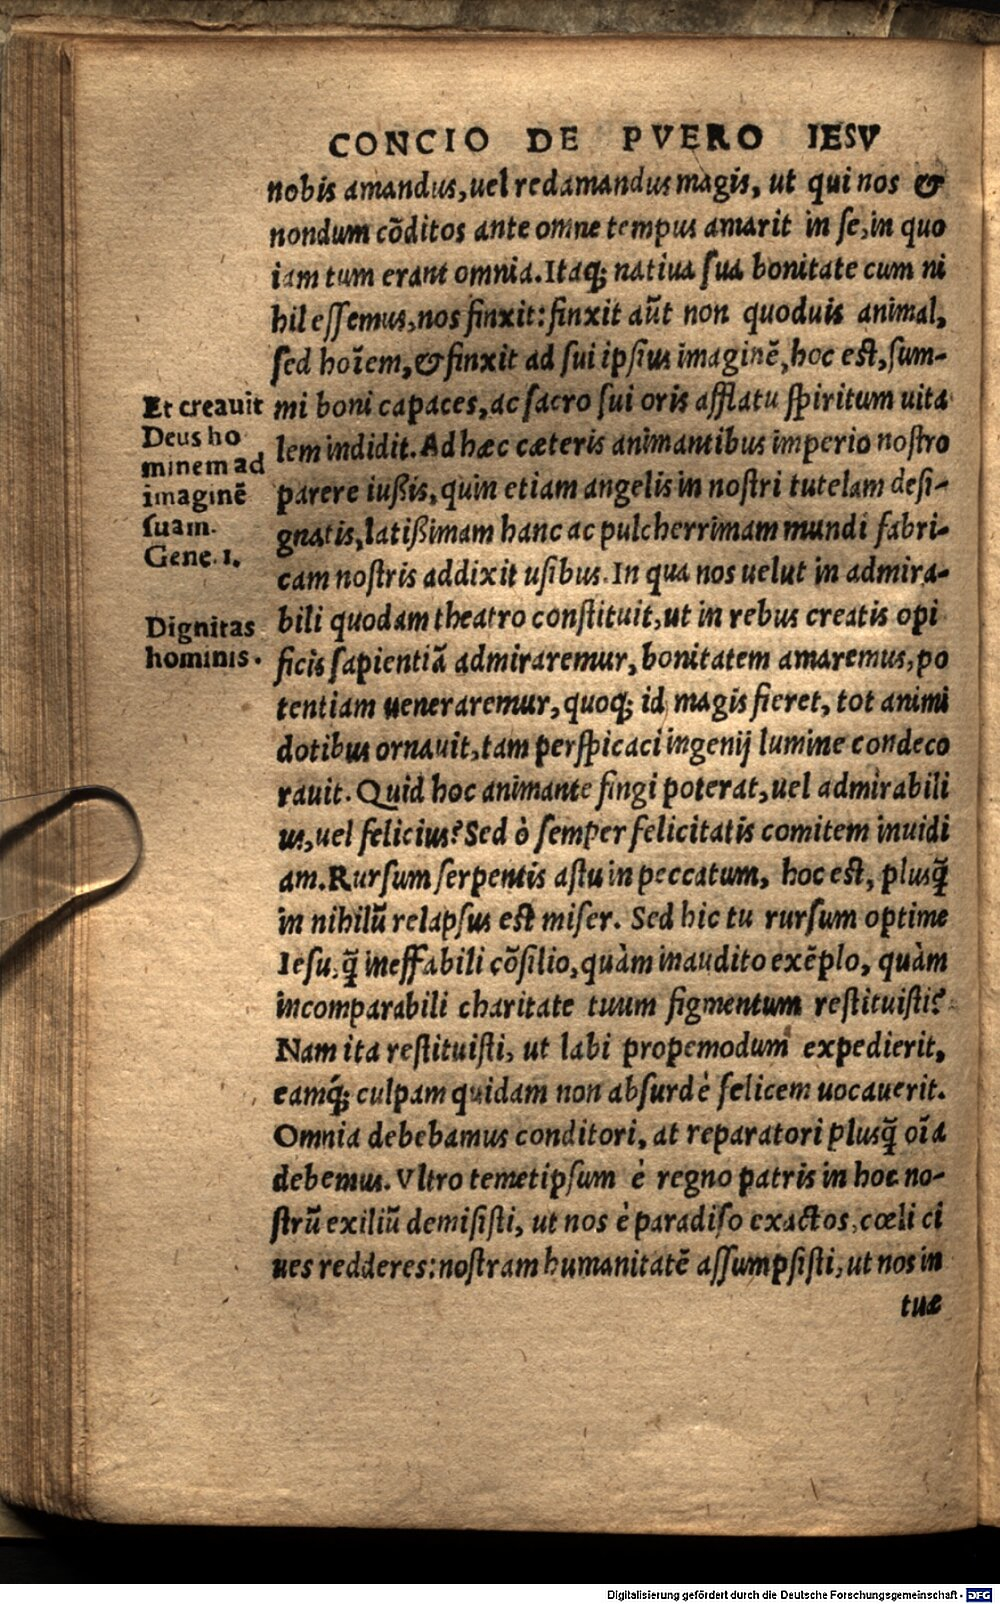 CONCIO DE PVERO IESV
nobis amandus, uel redamandus magis, ut qui nos &
nondum cõditos ante omne tempus amarit in se, in quo
iam tum erant omnia. Itaq; natiua sua bonitate cum ni
hil essemus, nos finxit: finxit aũt non quoduis animal,
sed hoĩem, & finxit ad sui ipsius imaginẽ, hoc est, sum-
mi boni capaces, ac sacro sui oris afflatu spiritum uita
lem indidit. Ad hæc cæteris animantibus imperio nostro
parere iußis, quin etiam angelis in nostri tutelam desi-
gnatis, latißimam hanc ac pulcherrimam mundi fabri-
cam nostris addixit usibus. In qua nos uelut in admira-
bili quodam theatro constituit, ut in rebus creatis opi
ficis sapientiã admiraremur, bonitatem amaremus, po
tentiam ueneraremur, quoq; id magis fieret, tot animi
dotibus ornauit, tam perspicaci ingenij lumine condeco
rauit. Quid hoc animante fingi poterat, uel admirabili
us, uel felicius? Sed ò semper felicitatis comitem inuidi
am. Rursum serpentis astu in peccatum, hoc est, plusq̃
in nihilũ relapsus est miser. Sed hic tu rursum optime
Iesu, q̃ ineffabili cõsilio, quàm inaudito exẽplo, quàm
incomparabili charitate tuum figmentum restituisti?
Nam ita restituisti, ut labi propemodum expedierit,
eamq́; culpam quidam non absurdè felicem uocauerit.
Omnia debebamus conditori, at reparatori plusq̃ oĩa
debemus. Vltro temetipsum è regno patris in hoc no-
strũ exiliũ demisisti, ut nos è paradiso exactos, cœli ci
ues redderes: nostram humanitatẽ assumpsisti, ut nos in
tuæ
Et creauit
Deus ho
minem ad
imaginẽ
suam.
Gene. 1.
Dignitas
hominis.
Digitalisierung gefördert durch die Deutsche Forschungsgemeinschaft - DFG